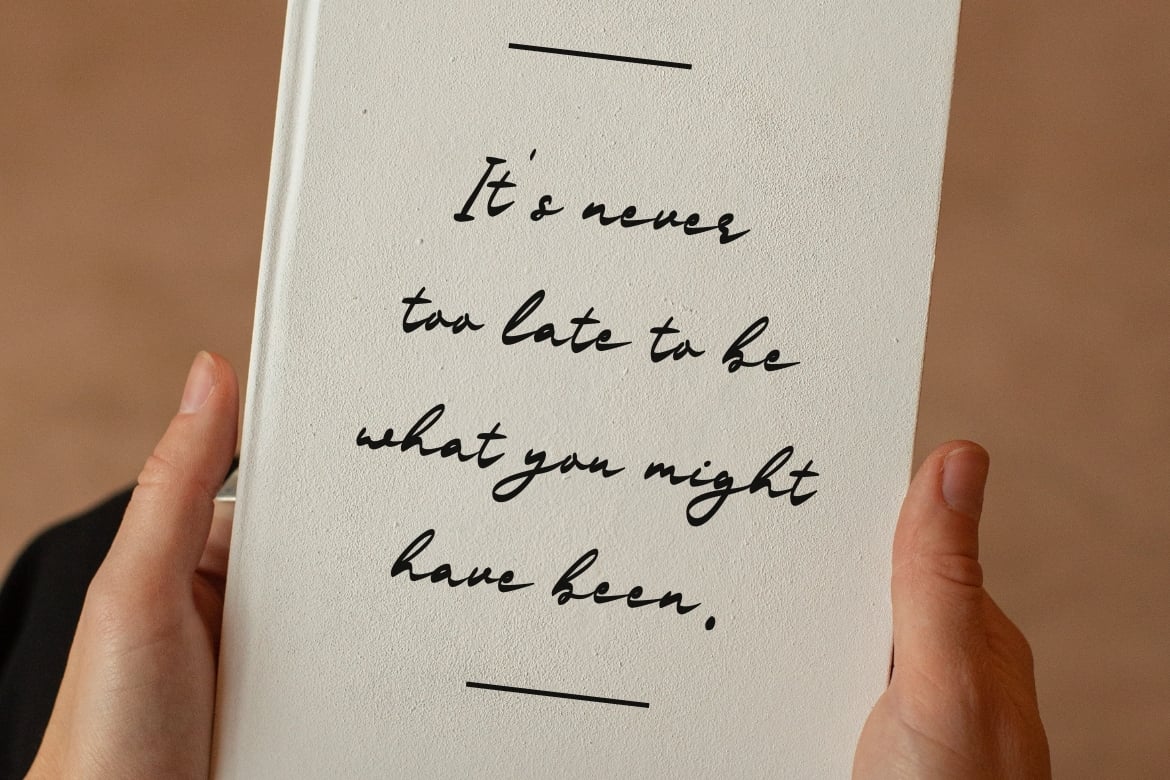 It's never
too late to be
what you might
have been.